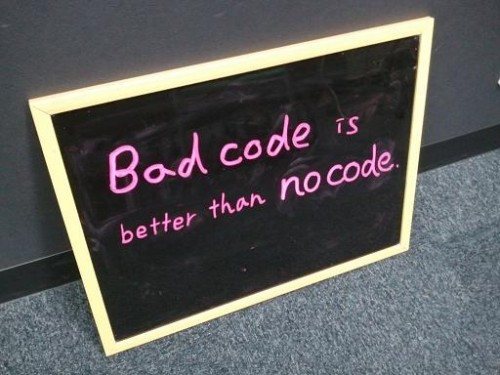 Bad code is
better than no code.